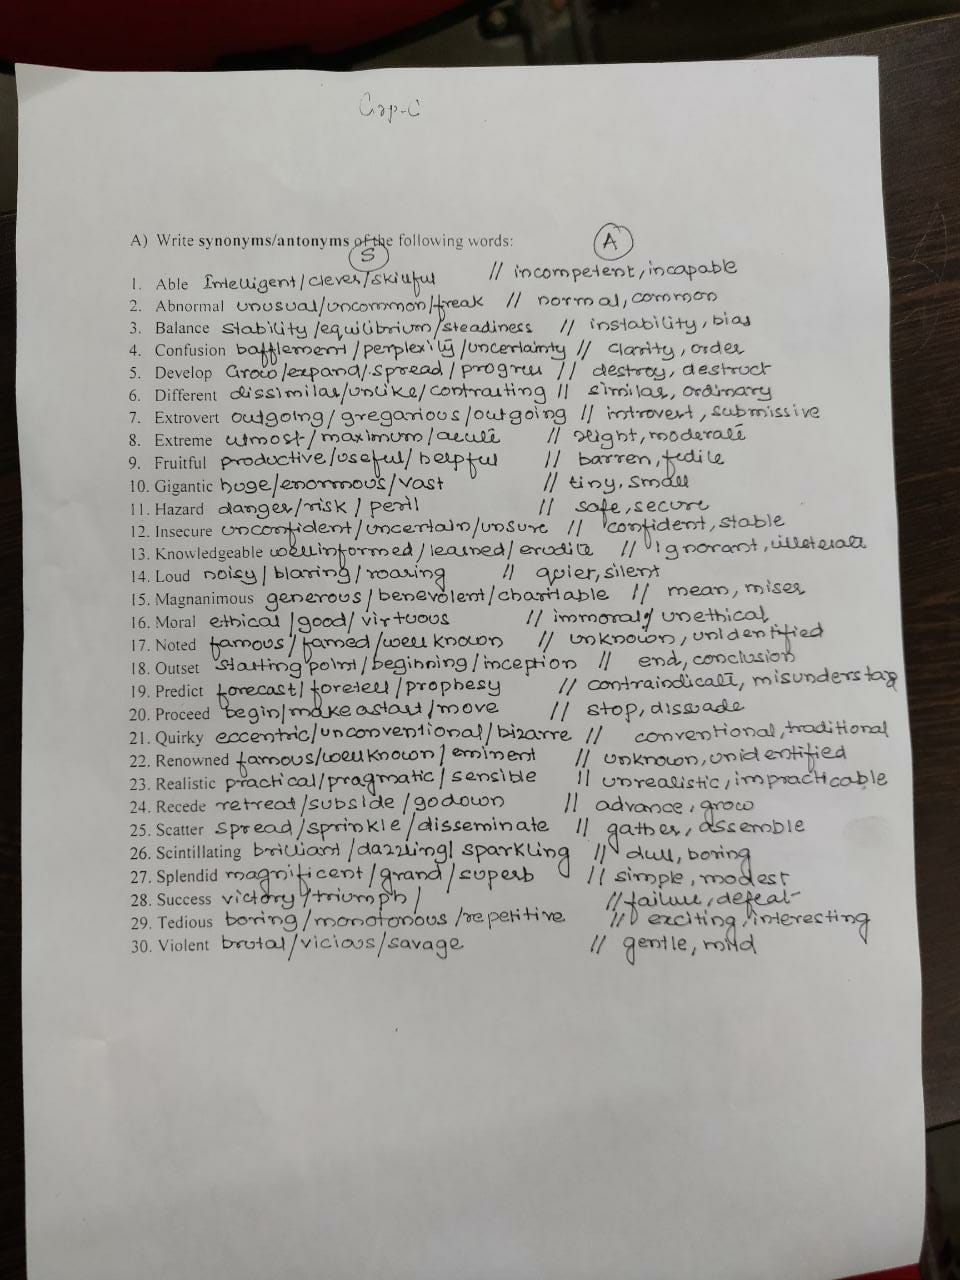 Grp-C
A) Write synonyms/antonyms of the following words:
S A
1. Able Intelligent/clever/skillful // incompetent, incapable
2. Abnormal unusual/uncommon/freak // normal, common
3. Balance stability/equilibrium/steadiness // instability, bias
4. Confusion bafflement/perplexity/uncertainty // clarity, order
5. Develop Grow/expand/spread/progress // destroy, destruct
6. Different dissimilar/unlike/contrasting // similar, ordinary
7. Extrovert outgoing/gregarious/outgoing // introvert, submissive
8. Extreme utmost/maximum/acute // slight, moderate
9. Fruitful productive/useful/helpful // barren,
10. Gigantic huge/enormous/vast // tiny, small
11. Hazard danger/risk/peril // safe, secure
12. Insecure unconfident/uncertain/unsure // confident, stable
13. Knowledgeable wellinformed/learned/erudite // ignorant, illeterate
14. Loud noisy/blaring/roaring // quier, silent
15. Magnanimous generous/benevolent/charitable // mean, miser
16. Moral ethical/good/virtuous // immoral/unethical
17. Noted famous/famed/well known // unknown, unidentified
18. Outset starting point/beginning/inception // end, conclusion
19. Predict forecast/foretell/prophesy // contraindicate,
20. Proceed begin/make a start/move // stop, dissuade
21. Quirky eccentric/unconventional/bizarre // conventional, traditional
22. Renowned famous/well known/eminent // unknown, unidentified
23. Realistic practical/pragmatic/sensible // unrealistic, impracticable
24. Recede retreat/subside/go down // advance, grow
25. Scatter spread/sprinkle/disseminate // gather, assemble
26. Scintillating brilliant/dazzling/sparkling // dull, boring
27. Splendid magnificent/grand/superb // simple, modest
28. Success victory/triumph/ // failure, defeat
29. Tedious boring/monotonous/repetitive // exciting, interesting
30. Violent brutal/vicious/savage // gentle, mild